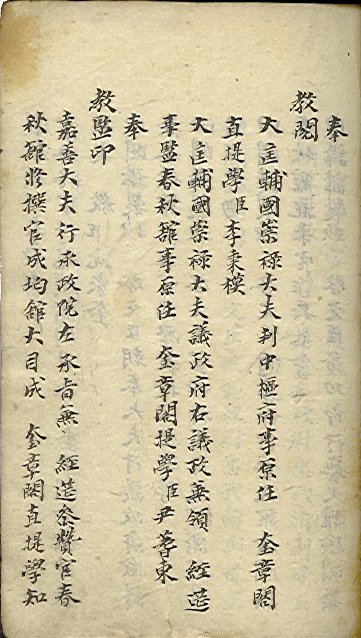 奉
教閱
大匡輔國崇祿大夫判中樞府事原任　奎章閣
直提學臣李秉模
大匡輔國崇祿大夫議政府右議政兼領　經筵
事監春秋館事原任　奎章閣提學臣尹蓍東
奉
教監印
嘉善大夫行承政院左承旨兼　經筵參贊官春
秋館修撰官成均館大司成　奎章閣直提學知